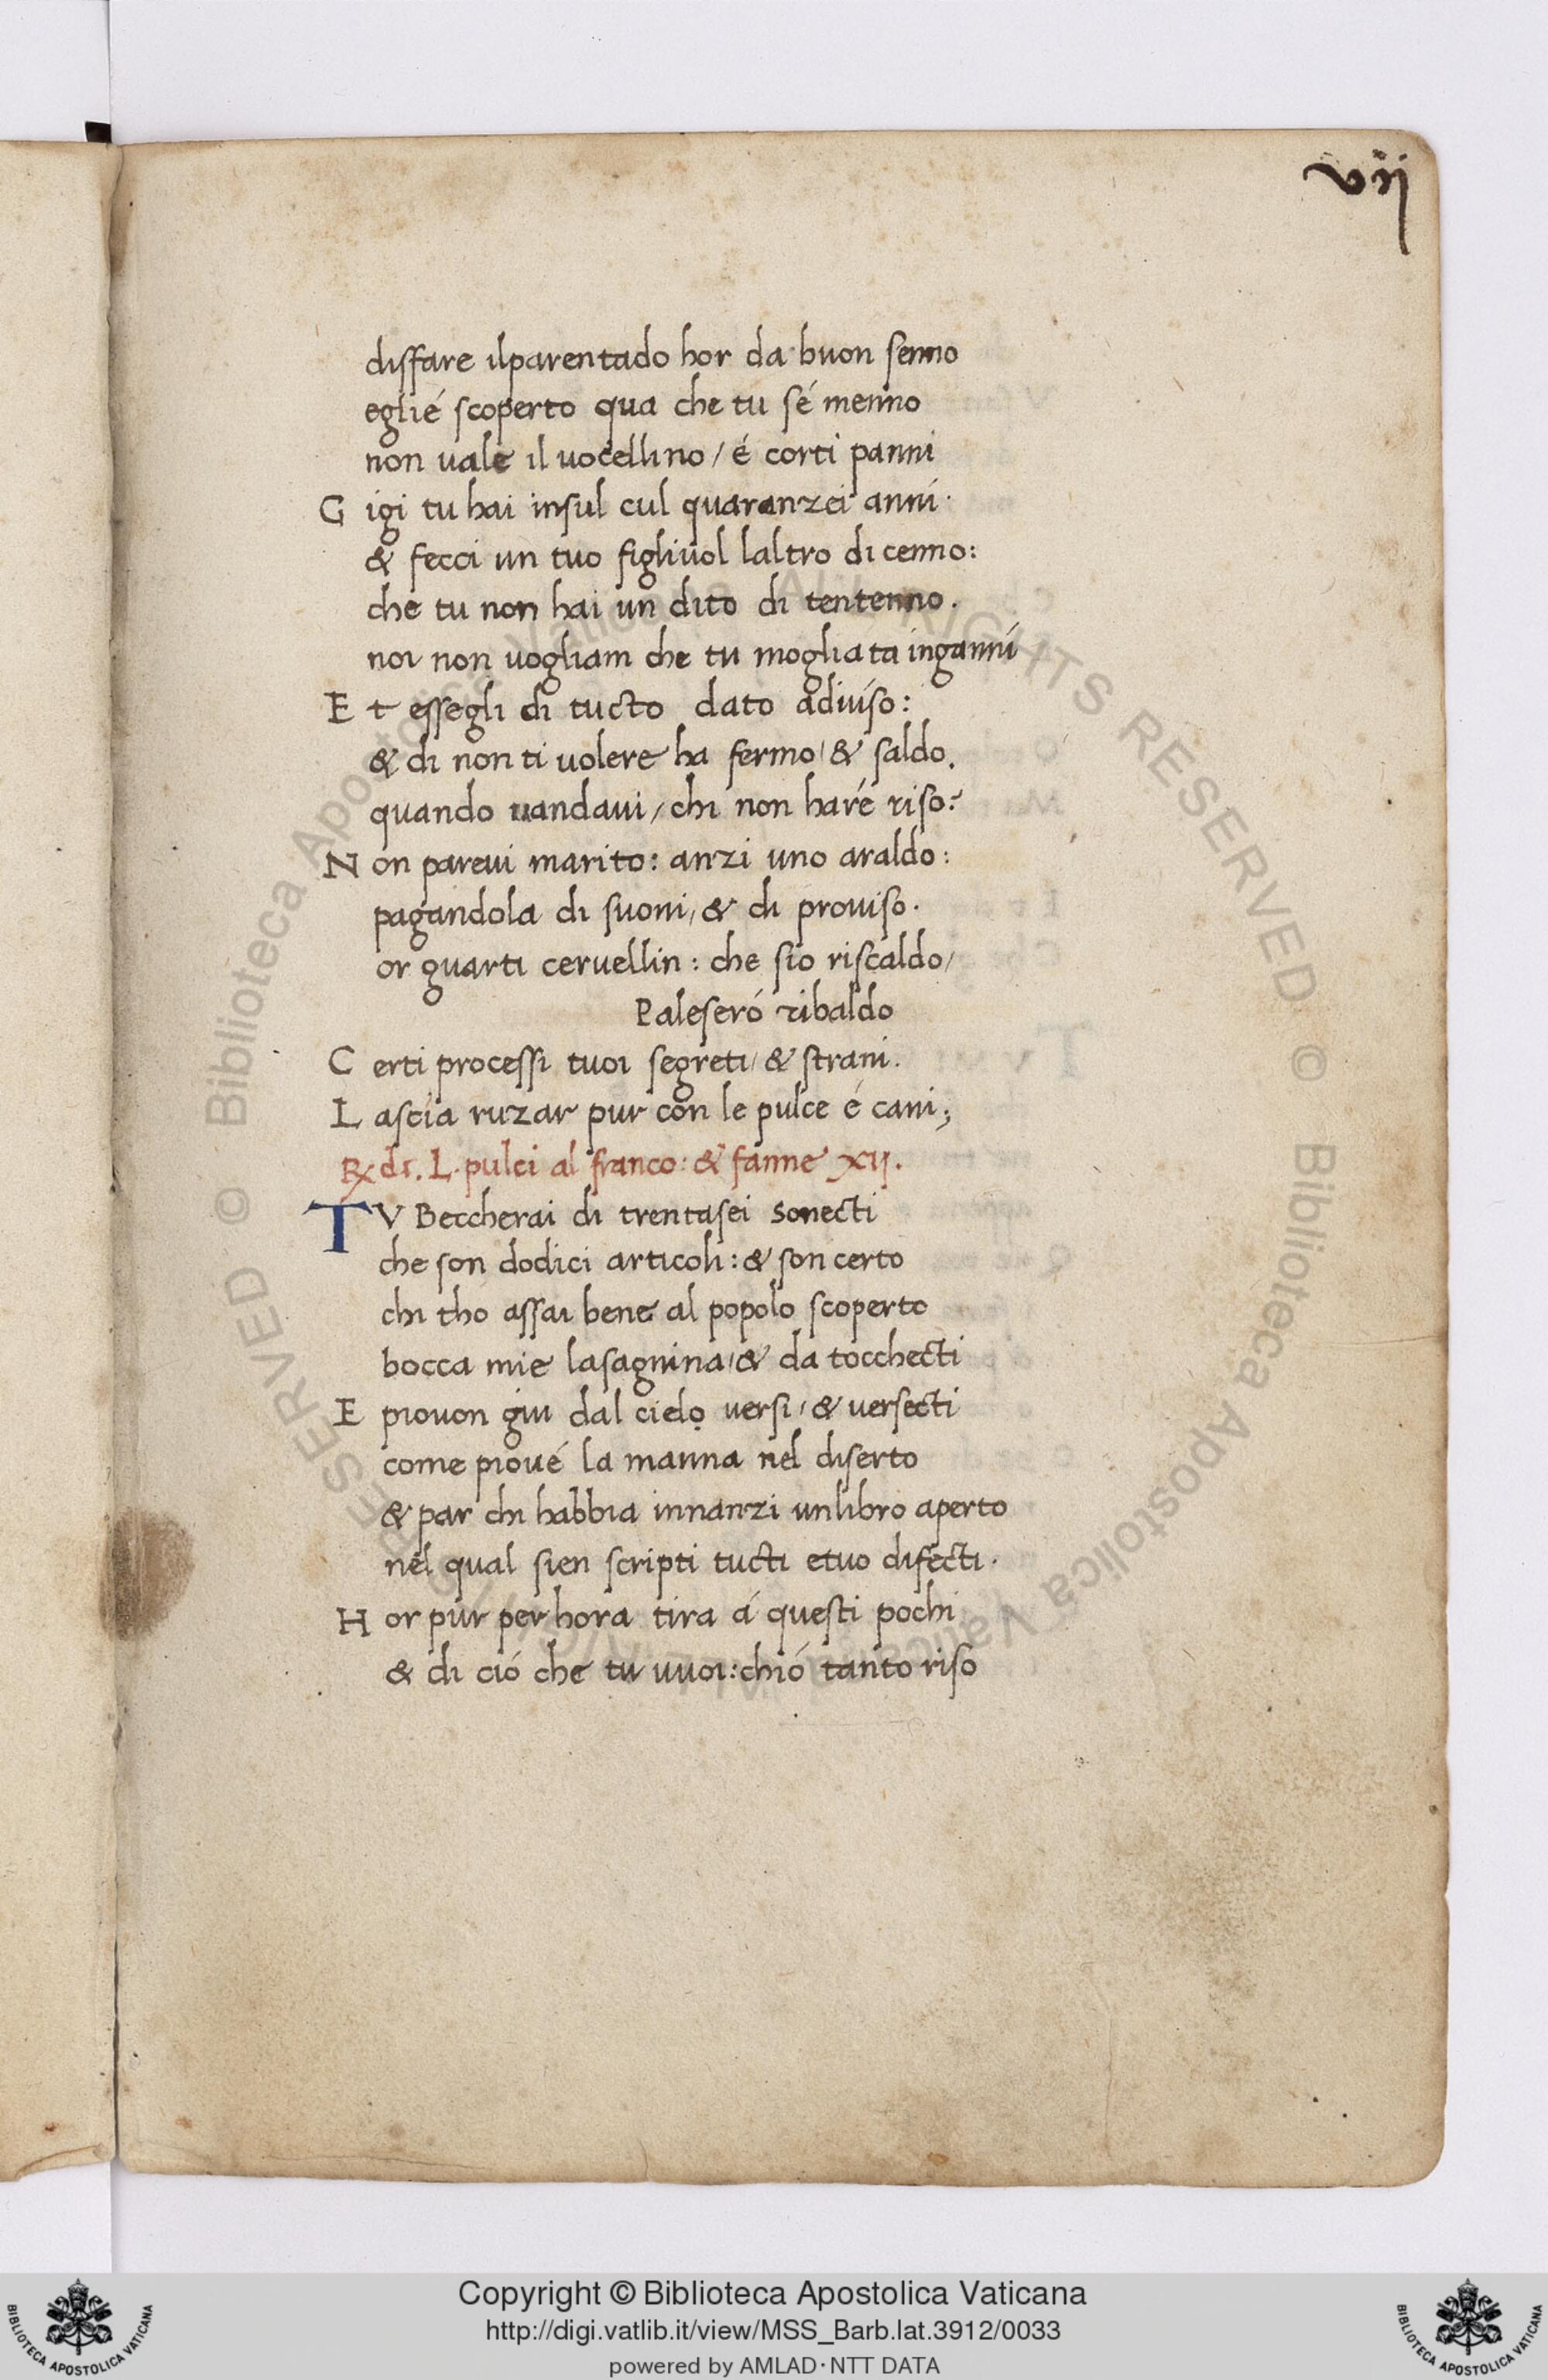 vij
disfare ilparentado hor da buon senno
eglié scoperto qua che tu sé menno
non uale il uocellino / é corti panni
G igi tu hai insul cul quaranzei anni.
& fecci un tuo figliuol laltro di cenno:
che tu non hai un dito di tentenno.
noi non uogliam che tu mogliata inganni
E t essegli di tucto dato aduiso:
& di non ti uolere ha fermo / & saldo.
quando uandaui / chi non haré riso?
N on pareui marito: anzi uno araldo:
pagandola di suoni / & di prouiso.
or guarti ceruellin: che sio riscaldo /
Paleseró ribaldo
C erti processi tuoi segreti / & strani.
L ascia ruzar pur con le pulce é cani;
R ds. L. pulci al franco: & fanne xij.
TV Beccherai di trentasei sonecti
che son dodici articoli: & son certo
chi tho assai bene al popolo scoperto
bocca mie lasagnina / & da tocchecti
E piouon giu dal cielo uersi / & uersecti
come pioué la manna nel diserto
& par chi habbia innanzi unlibro aperto
nel qual sien scripti tucti etuo difecti.
H or pur per hora tira á questi pochi
& di ció che tu uuoi: chió tanto riso
Copyright © Biblioteca Apostolica Vaticana
http://digi.vatlib.it/view/MSS_Barb.lat.3912/0033
powered by AMLAD·NTT DATA